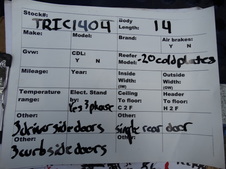 Stock#:
TRIC1404
Body
Length:
14
Make:
Model:
Brand:
Air brakes?
Y N
Gvw:
CDL:
Y N
Reefer
Model:
-20 coldplates
Mileage:
Year:
Inside
Width:
Outside
Width:
Temperature
range:
Elect. Stand
by:
Yes 3 phase
Ceiling
To floor:
C 2 F
Header
To floor:
H 2 F
Other:
3 driver side doors
Other:
single rear door
Other:
3 curb side doors
Other: